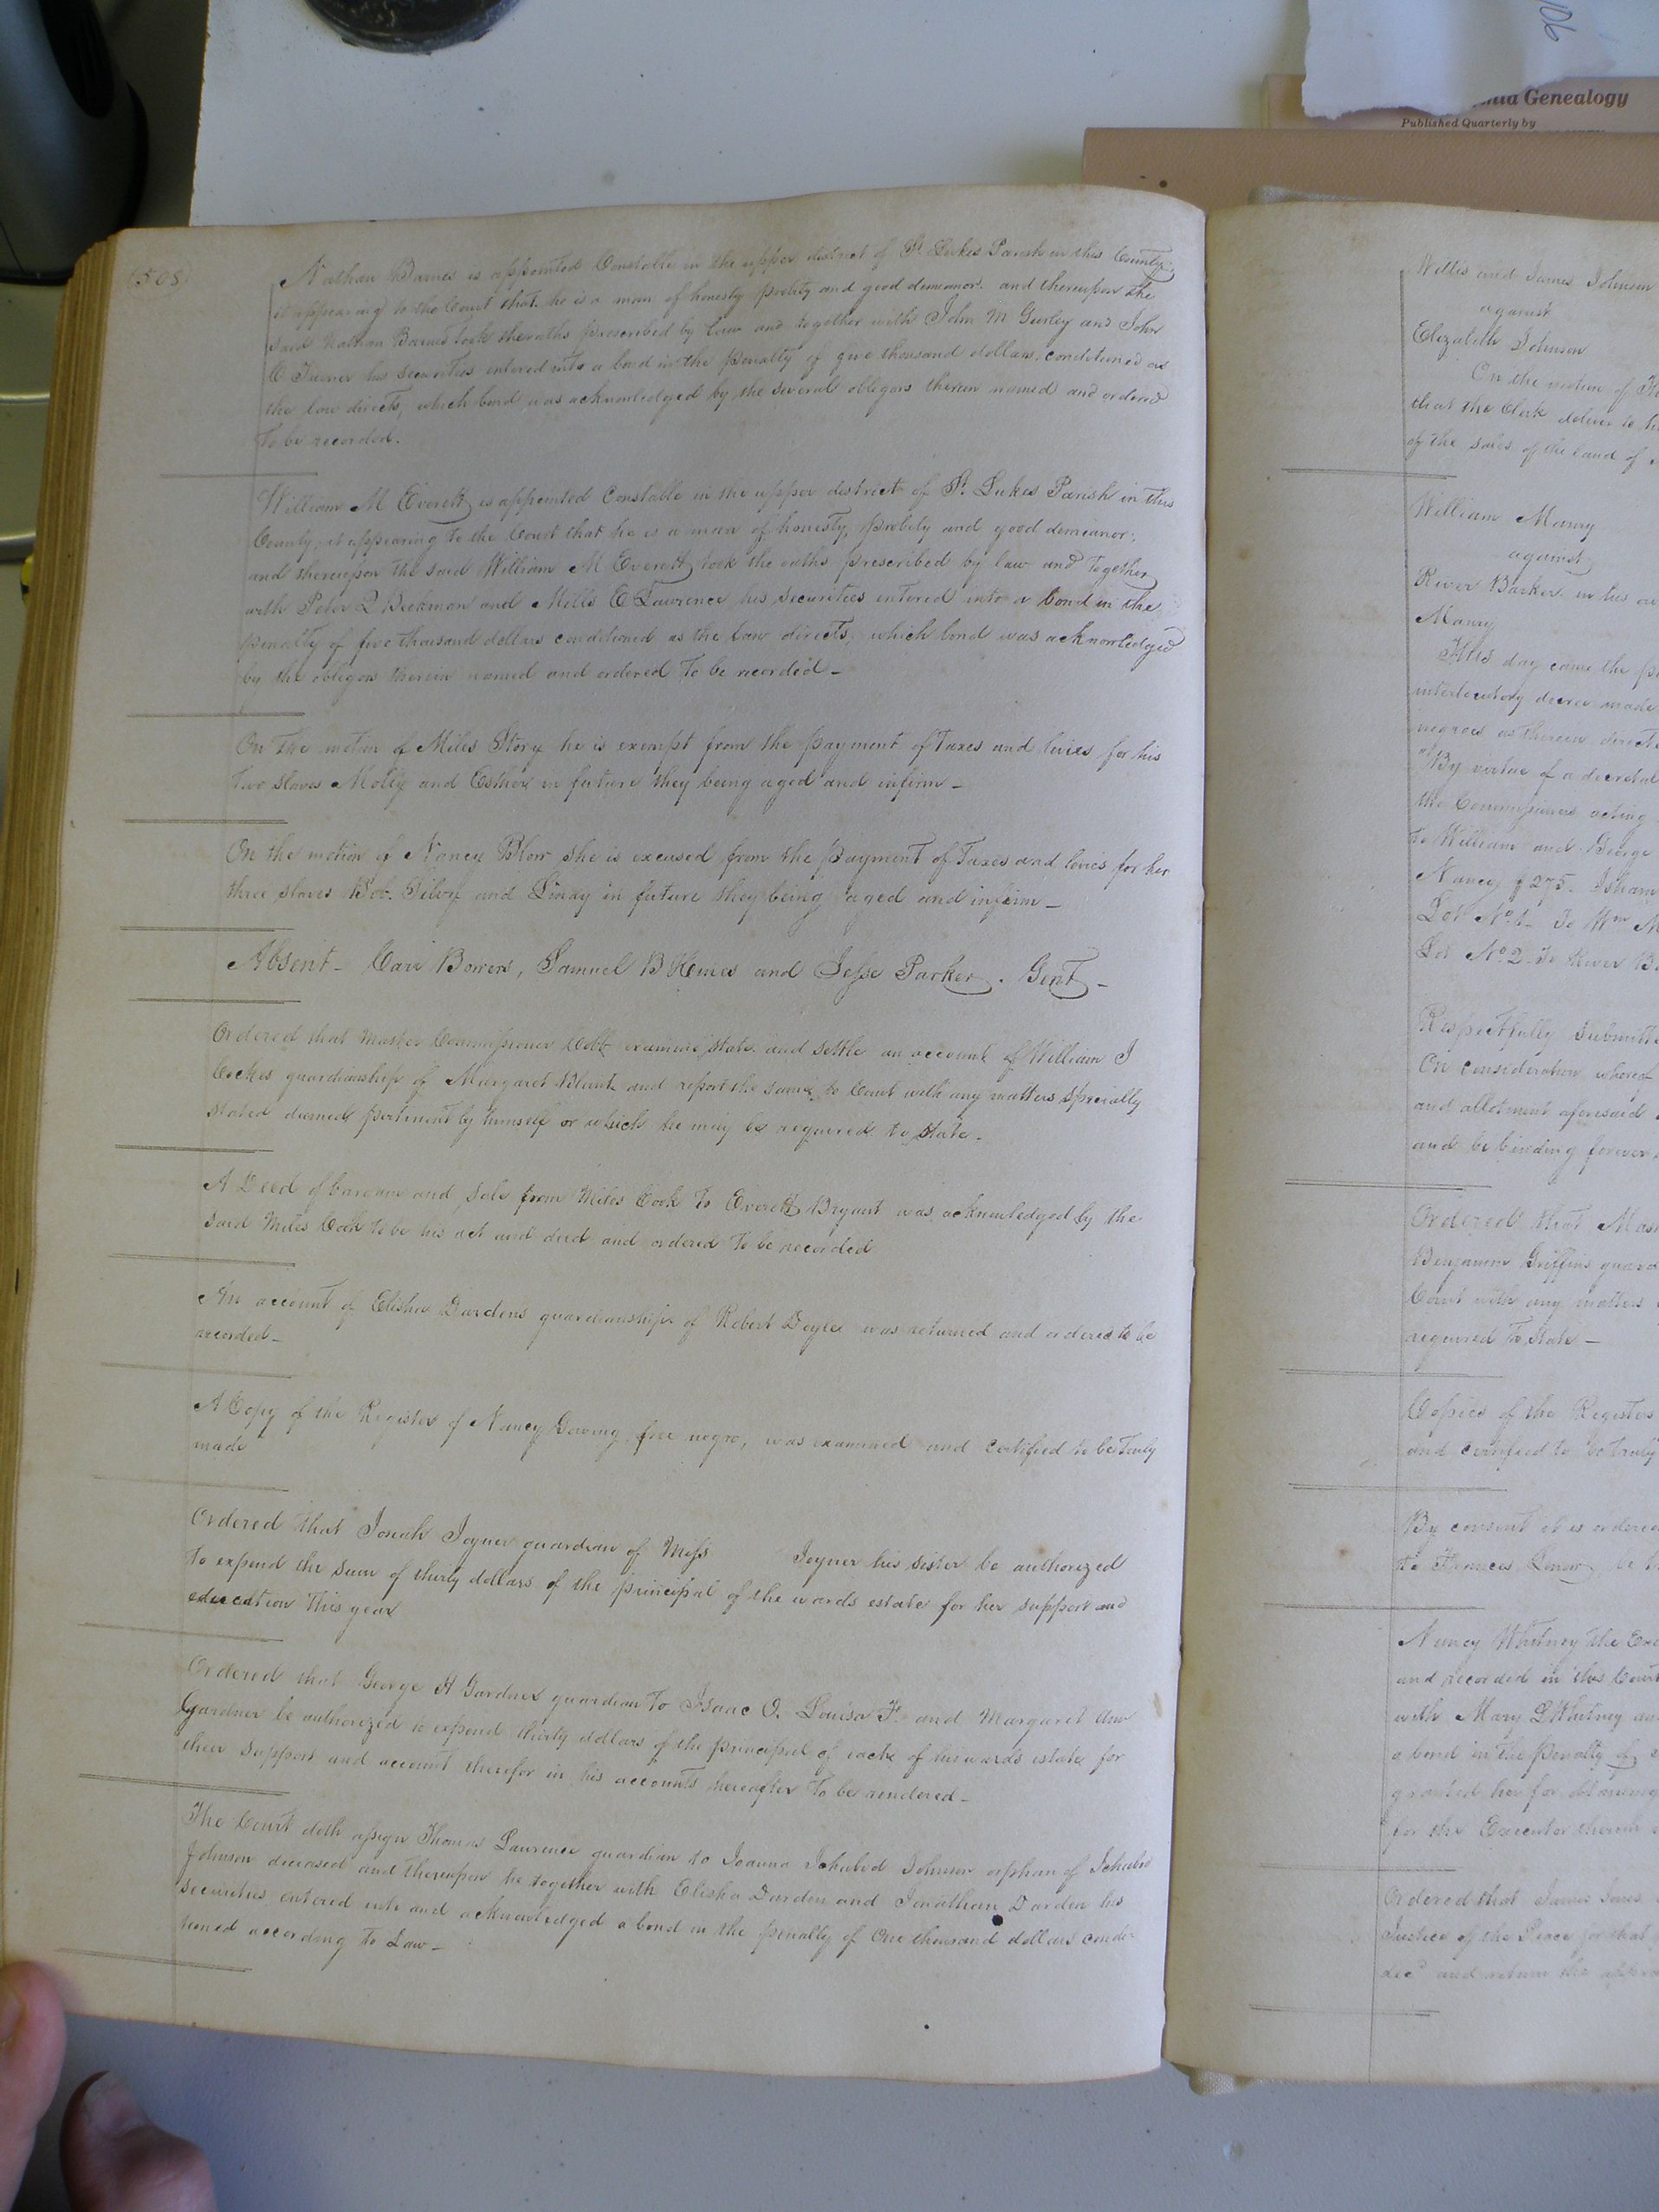 106
Genealogy
Published Quarterly by
(508)
Nathan Barnes is appointed Constable in the upper district of St Lukes Parish in this County,
it appearing to the Court that he is a man of honesty probity and good demeanor. and thereupon the
said Nathan Barnes took the oaths prescribed by law and together with John M Gurley and John
C Turner his securities entered into a bond in the penalty of five thousand dollars, conditioned as
the law directs, which bond was acknowledged by the several obligors therein named and ordered
to be recorded.
William M Everett is appointed Constable in the upper district of St Lukes Parish in this
County, it appearing to the Court that he is a man of honesty, probity and good demeanor.
and thereupon the said William M Everett took the oaths prescribed by law and together
with Peter Beekman and Mills E Lawrence his securities entered into a bond in the
penalty of five thousand dollars conditioned as the law directs, which bond was acknowledged
by the obligors therein named and ordered to be recorded -
On the motion of Miles Story he is exempt from the payment of taxes and levies for his
two slaves Molly and Esther in future they being aged and infirm -
On the motion of Nancy Blow she is excused from the payment of Taxes and levies for her
three slaves Bob. Silvy and Linay in future they being aged and infirm -
Absent - Carr Bowers, Samuel B Hines and Jesse Parker. Gent -
Ordered that Master Commissioner Cobb examine state and settle an account of William J
Cockes guardianship of Margaret Blunt and report the same to Court with any matters specially
stated deemed pertinent by himself or which he may be required to state.
A Deed of bargain and sale from Miles Cook to Everett Bryant was acknowledged by the
said Miles Cook to be his act and deed and ordered to be recorded
An account of Elisha Dardens guardianship of Robert Doyles was returned and ordered to be
recorded -
A Copy of the Register of Nancy Gowing free negro, was examined and certified to be Truly
made
Ordered that Josiah Joyner guardian of Miss Joyner his sister be authorized
to expend the sum of thirty dollars of the principal of the wards estate for her support and
education this year
Ordered that George H Gardner guardian to Isaac O. Louisa F. and Margaret Ann
Gardner be authorized to expend thirty dollars of the principal of each of his wards estate for
their support and account therefor in his accounts hereafter to be rendered -
The Court doth assign Thomas Lawrence guardian to Joanna Ichabod Johnson orphan of Ichabod
Johnson deceased and thereupon he together with Elisha Darden and Jonathan Darden his
securities entered into and acknowledged a bond in the penalty of One thousand dollars condi-
tioned according to Law -
Willis and James Johnson
against
Elizabeth Johnson
On the motion of
that the Clerk deliver to
of the sales of the land of
William Maury
against
River Barker in his
Maury
This day came the
interlocutory decree made
negroes as therein
"By virtue of a decretal
the Commissioners acting
to William and George
Nancy $275. Isham
Lot No 1 - To Wm
Lot No 2 - To River
Respectfully submitte
On consideration whereof
and allotment aforesaid
and be binding forever.
Ordered that Mas
Benjamin Griffins guard
Court with any matters
required to state -
Copies of the Registers
and certified to be truly
By consent it is ordered
to Frances
Nancy Whitney the Exe
and recorded in this Court
with Mary L Whitney
a bond in the penalty of
granted her for obtaining
for the Executor therein
Ordered that James Jones
Justice of the Peace for that
decd and return the appra